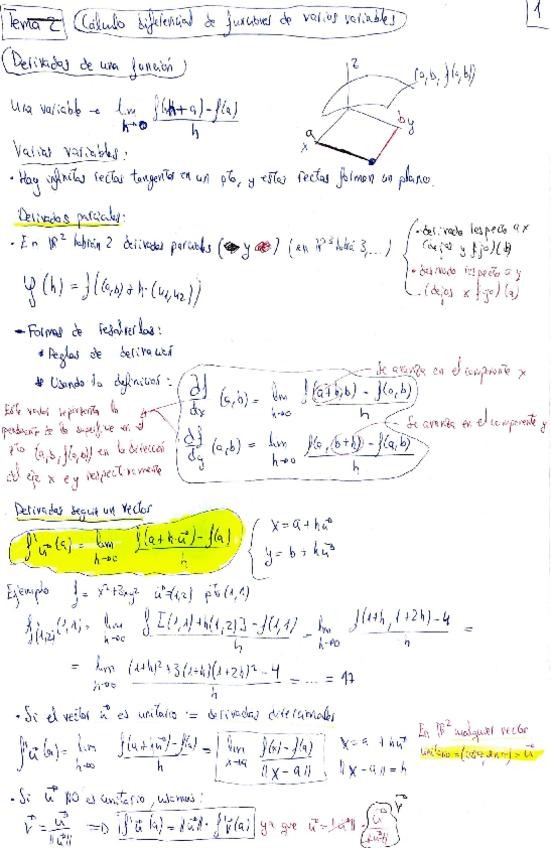 Tema 2 Cálculo diferencial de funciones de varias variables
1
Derivadas de una función
Una variable → lim h→0 f(h+a)-f(a) / h
z
(a,b,f(a,b))
a
x
b y
Varias variables:
• Hay infinitas rectas tangentes en un pto, y estas rectas forman un plano.
Derivadas parciales:
• En ℝ² habrán 2 derivadas parciales ( y ) (en ℝ³ habrá 3,...)
• derivada respecto a x
(dejas y fijo) (b)
• derivada respecto a y
(dejas x fijo) (a)
φ(h) = f((a,b)+h·(u₁,u₂))
- Formas de resolverlas:
• Reglas de derivación
• Usando la definición:
∂f/∂x (a,b) = lim h→0 f(a+h,b)-f(a,b) / h
Se avanza en el componente x
∂f/∂y (a,b) = lim h→0 f(a,(b+h))-f(a,b) / h
Se avanza en el componente y
Este valor representa la
pendiente de la superficie en el
pto (a,b,f(a,b)) en la dirección
del eje x e y respectivamente
Derivadas según un vector
f'u⃗(a) = lim h→0 f(a+h·u⃗)-f(a) / h
x = a + hu⃗
y = b + hu⃗
Ejemplo f = x²+3xy² u⃗=(1,2) pto(1,1)
f'(1,2)(1,1) = lim h→0 f[(1,1)+h(1,2)]-f(1,1) / h = lim h→0 f(1+h, 1+2h)-4 / h =
= lim h→0 (1+h)²+3(1+h)(1+2h)²-4 / h = ... = 17
• Si el vector u⃗ es unitario = derivadas direccionales
f'u⃗(a) = lim h→0 f(a+hu⃗)-f(a) / h = lim x→a f(x)-f(a) / ||x-a||
x = a + hu⃗
||x-a|| = h
En ℝ² cualquier vector
unitario = u⃗
• Si u⃗ NO es unitario, usamos:
v⃗ = u⃗ / ||u⃗|| ⇒ f'u⃗(a) = ||u⃗||·f'v⃗(a) ya que u⃗ = ||u⃗||· u⃗ / ||u⃗|| v⃗